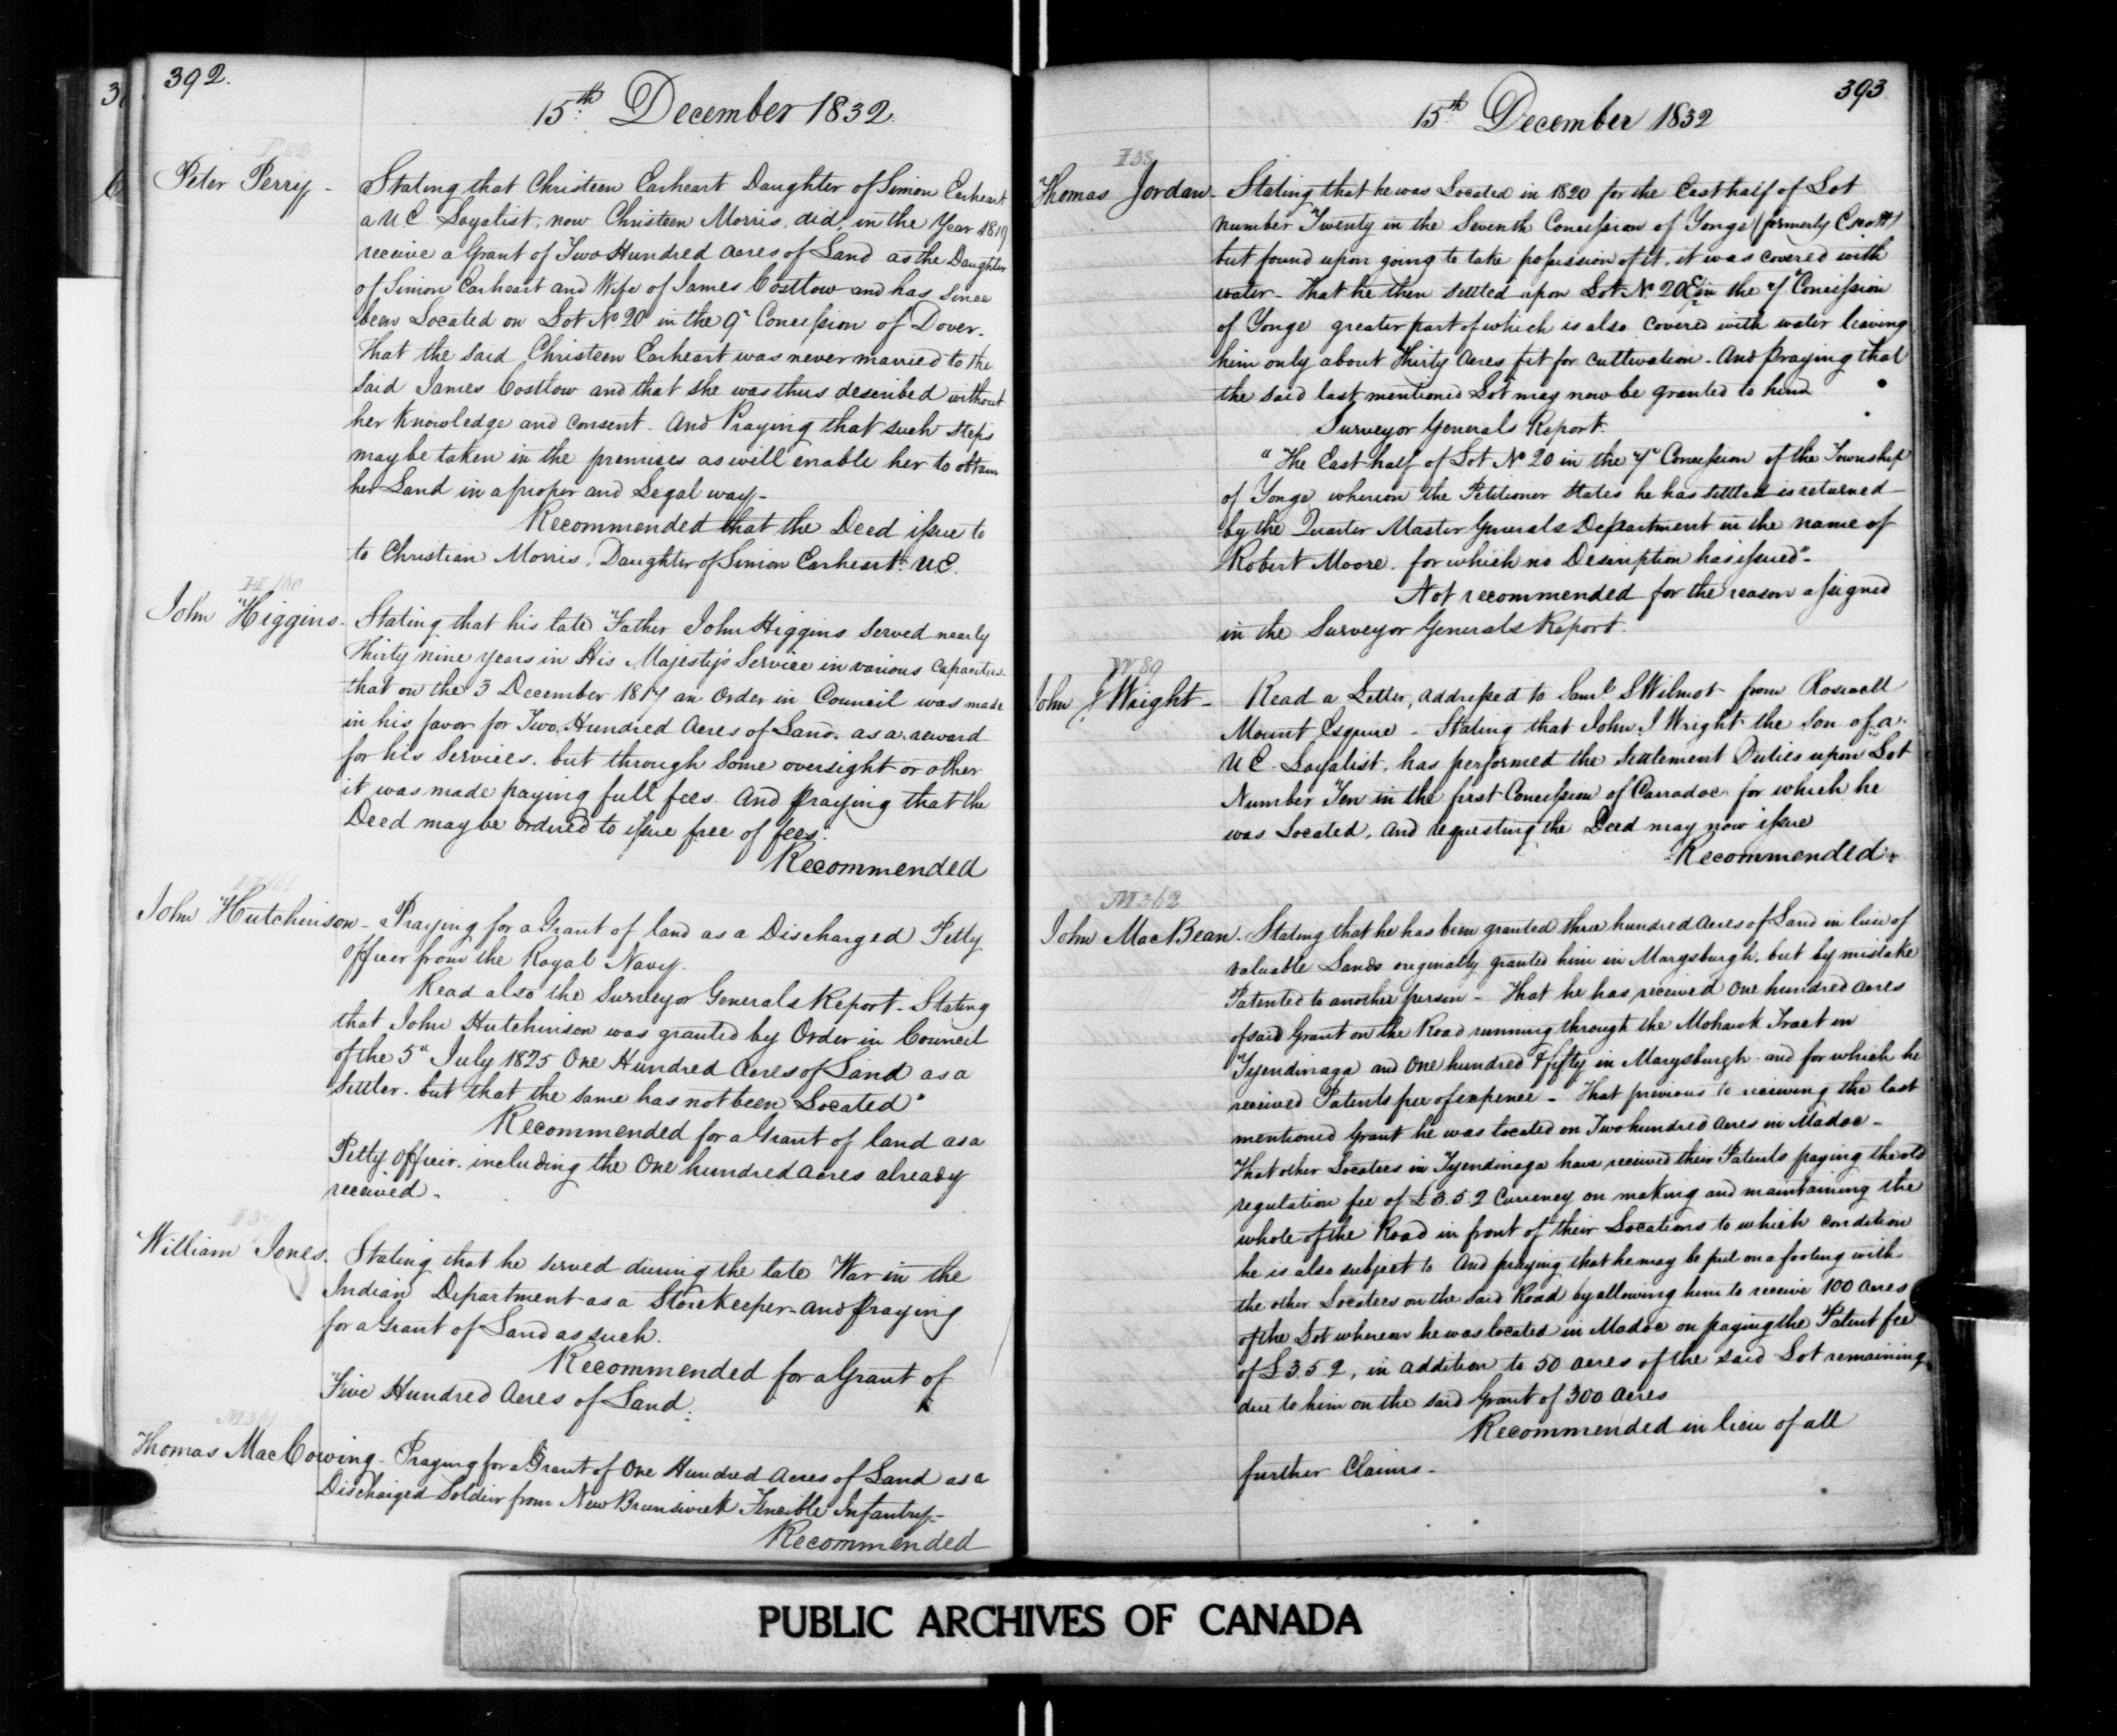 392.
15th December 1832.
P 82
Peter Perry - Stating that Christeen Earheart Daughter of Simon Earheart
a U.E. Loyalist, now Christeen Morris, did, in the Year 1819
receive a Grant of Two Hundred Acres of Land as the Daughter
of Simon Earheart and Wife of James Costlow and has since
been Located on Lot No 20 in the 9th Concession of Dover.
That the said Christeen Earheart was never married to the
said James Costlow and that she was thus described without
her knowledge and consent - And Praying that such steps
may be taken in the premises as will enable her to obtain
her Land in a proper and Legal way -
Recommended that the Deed issue to
to Christian Morris, Daughter of Simon Earheart U.E.
H 160
John Higgins - Stating that his late Father John Higgins served nearly
Thirty nine years in His Majesty's Service in various Capacities
that on the 3 December 1817 an Order in Council was made
in his favor for Two Hundred Acres of Land as a reward
for his Services, but through some oversight or other
it was made paying full fees. And Praying that the
Deed may be ordered to issue free of fees.
Recommended
H 161
John Hutchinson - Praying for a Grant of land as a Discharged Petty
Officer from the Royal Navy.
Read also the Surveyor Generals Report - Stating
that John Hutchinson was granted by Order in Council
of the 5th July 1825 One Hundred Acres of Land as a
Settler. but that the same has not been Located"
Recommended for a Grant of land as a
Petty Officer. including the One hundred Acres already
received -
William Jones. Stating that he served during the late War in the
Indian Department as a StoreKeeper - and Praying
for a Grant of Land as such.
Recommended for a Grant of
Five Hundred Acres of Land.
M 361
Thomas MacCowing - Praying for a Grant of One Hundred Acres of Land as a
Discharged Soldier from New Brunswick Fencible Infantry -
Recommended
393
15th December 1832
I 38
Thomas Jordan - Stating that he was Located in 1820 for the East half of Lot
number Twenty in the Seventh Concession of Yonge (formerly Escott)
but found upon going to take possession of it, it was covered with
water - That he then settled upon Lot No 20 E½ in the 7th Concession
of Yonge greater part of which is also covered with water leaving
him only about Thirty Acres fit for cultivation - And Praying that
the said last mentioned Lot may now be granted to him
Surveyor Generals Report.
"The East half of Lot No 20 in the 7th Concession of the Township
of Yonge whereon the Petitioner states he has settled is returned
by the Quarter Master Generals Department in the name of
Robert Moore. for which no Description has issued" -
Not recommended for the reason assigned
in the Surveyor Generals Report.
W 89
John J Wright - Read a Letter, addressed to Saml S Wilmot from Roswell
Mount Esquire - Stating that John J Wright the Son of a
U.E. Loyalist, has performed the Settlement Duties upon Lot
Number Ten in the first Concession of Carradoc for which he
was Located, and requesting the Deed may now issue
Recommended.
M 362
John MacBean. Stating that he has been granted three hundred Acres of Land in lieu of
valuable Lands originally granted him in Marysburgh, but by mistake
Patented to another person - That he has received One hundred Acres
of said Grant on the Road running through the Mohawk Tract in
Tyendinaga and One hundred & fifty in Marysburgh and for which he
received Patents free of expence - That previous to receiving the last
mentioned Grant he was located on Two hundred Acres in Madoc -
That other Locatees in Tyendinaga have received their Patents paying the old
regulation fee of £3.5.2 Currency on making and maintaining the
whole of the Road in front of their Locations to which condition
he is also subject to And praying that he may be put on a footing with
the other Locatees on the said Road by allowing him to receive 100 Acres
of the Lot whereon he was located in Madoc on paying the Patent fee
of £3.5.2, in addition to 50 Acres of the said Lot remaining
due to him on the said Grant of 300 Acres
Recommended in lieu of all
further Claims -
PUBLIC ARCHIVES OF CANADA